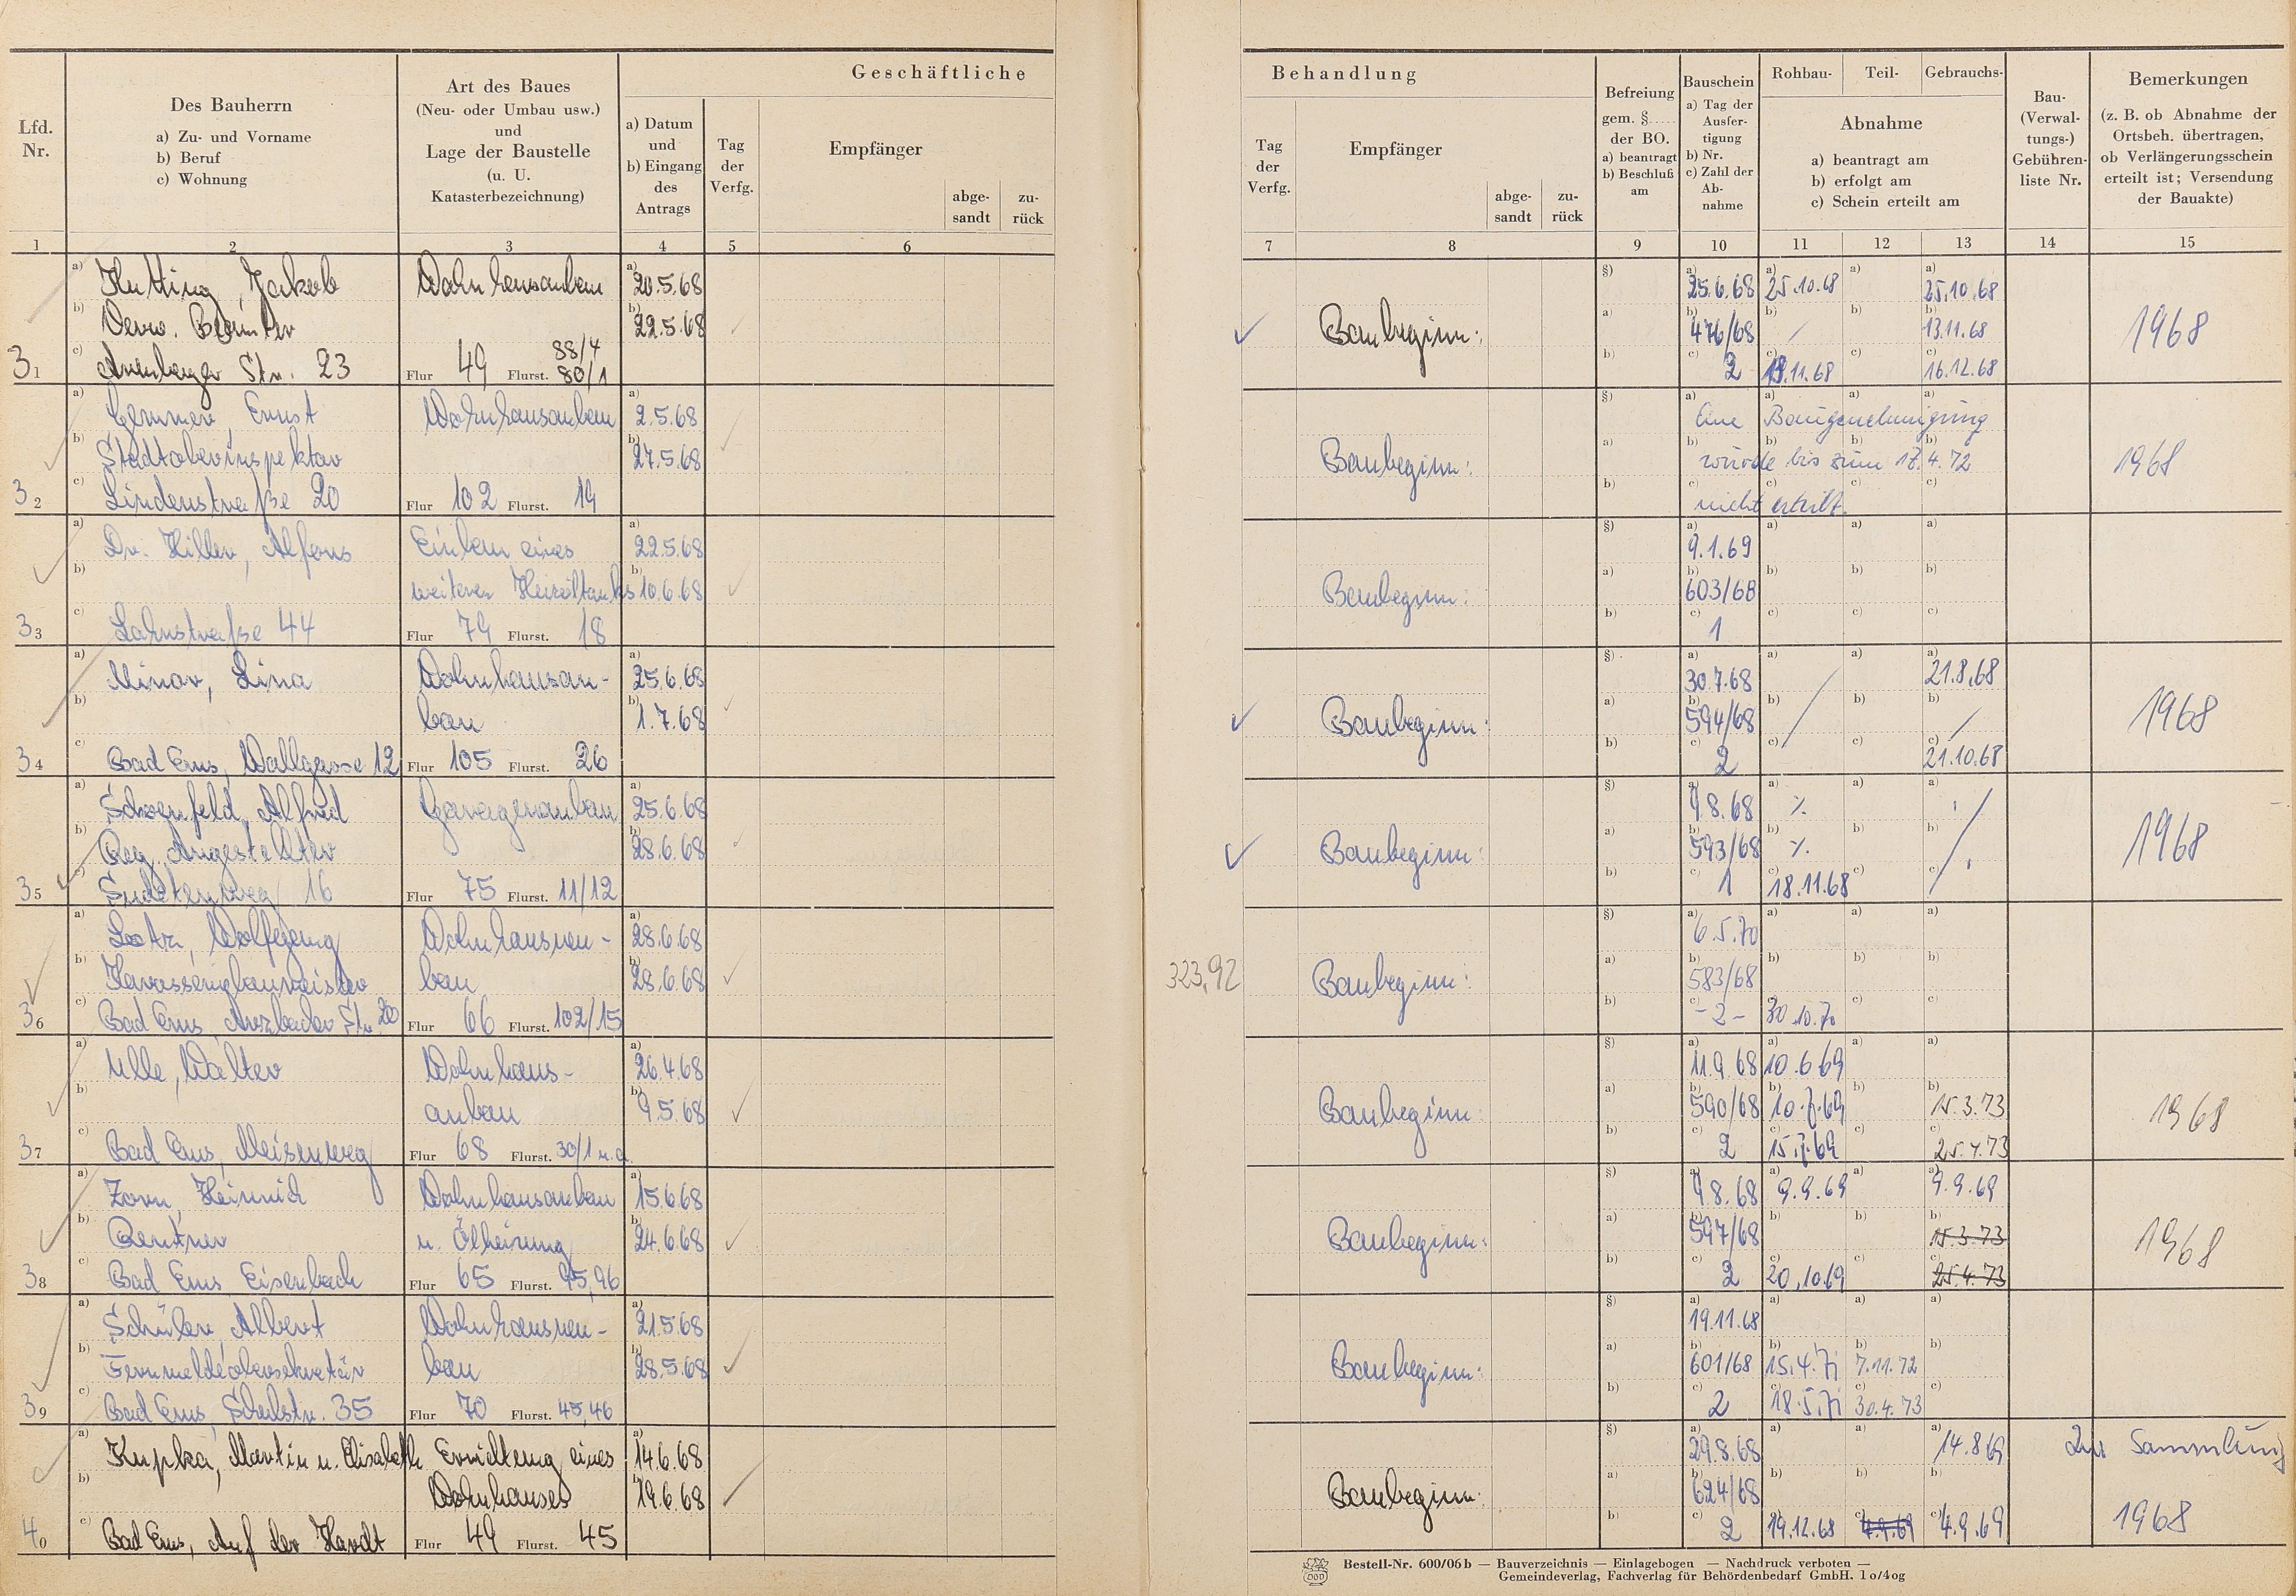 Geschäftliche
Behandlung
Lfd. Nr.
Des Bauherrn
a) Zu- und Vorname
b) Beruf
c) Wohnung
Art des Baues
(Neu- oder Umbau usw.)
und
Lage der Baustelle
(u. U.
Katasterbezeichnung)
a) Datum
und
b) Eingang
des
Antrags
Tag
der
Verfg.
Empfänger
abge-
sandt
zu-
rück
Tag
der
Verfg.
Empfänger
abge-
sandt
zu-
rück
Befreiung
gem. §
der BO.
a) beantragt
b) Beschluß
am
Bauschein
a) Tag der
Ausfer-
tigung
b) Nr.
c) Zahl der
Ab-
nahme
Rohbau- Teil- Gebrauchs-
Abnahme
a) beantragt am
b) erfolgt am
c) Schein erteilt am
Bau-
(Verwal-
tungs-)
Gebühren-
liste Nr.
Bemerkungen
(z. B. ob Abnahme der
Ortsbeh. übertragen,
ob Verlängerungsschein
erteilt ist; Versendung
der Bauakte)
1 2 3 4 5 6 7 8 9 10 11 12 13 14 15
a) Hutting, Jakob Wohnhausanbau a) 20.5.68 §) a) 25.6.68 a) 25.10.68 a) a) 25.10.68
b) Verw. Beamter b) 22.5.68 Baubeginn: a) b) 476/68 b) / b) b) 13.11.68 1968
31 c) Arenberger Str. 23 Flur 49 Flurst. 88/4 80/1 b) c) 2 c) 19.11.68 c) c) 16.12.68
a) Gemmer, Ernst Wohnhausanbau a) 2.5.68 §) a) Eine Baugenehmigung
b) Stadtoberinspektor b) 27.5.68 Baubeginn: a) b) wurde bis zum 18.4.72 1968
32 c) Lindenstraße 20 Flur 102 Flurst. 19 b) c) nicht erteilt.
a) Dr. Hiller, Alfons Einbau eines a) 22.5.68 §) a) 9.1.69 a) a) a)
b) weiteren Heizöltanks b) 10.6.68 Baubeginn: a) b) 603/68 b) b) b)
33 c) Lahnstraße 44 Flur 79 Flurst. 18 b) c) 1 c) c) c)
a) Minor, Lina Wohnhausan- a) 25.6.68 §) a) 30.7.68 a) a) a) 21.8.68
b) bau b) 1.7.68 Baubeginn: a) b) 594/68 b) b) b) / 1968
34 c) Bad Ems, Wallgasse 12 Flur 105 Flurst. 26 b) c) 2 c) c) c) 21.10.68
a) Schoenfeld, Alfred Garagenanbau a) 25.6.68 §) a) 9.8.68 a) ⁒ a) a)
b) Reg. Angestellter b) 28.6.68 Baubeginn: a) b) 593/68 b) ⁒ b) b) 1968
35 Sudetenweg 16 Flur 75 Flurst. 11/12 b) c) 1 18.11.68 c) c)
a) Lotz, Wolfgang Wohnhausneu- a) 28.6.68 §) a) 6.5.70 a) a) a)
b) Karosseriebaumeister bau b) 28.6.68 323,92 Baubeginn: a) b) 583/68 b) b) b)
36 c) Bad Ems, Arzbacher Str. 20 Flur 66 Flurst. 102/15 b) c) - 2 - c) 30.10.70 c) c)
a) Ulle, Walter Wohnhaus- a) 26.4.68 §) a) 11.9.68 a) 10.6.69 a) a)
b) anbau b) 9.5.68 Baubeginn: a) b) 590/68 b) 10.7.69 b) b) 15.3.73 1968
37 c) Bad Ems, Meisenweg Flur 68 Flurst. 30/1 u.a. b) c) 2 c) 15.7.69 c) c) 25.4.73
a) Zorn, Heinrich Wohnhausanbau a) 15.6.68 §) a) 9.8.68 a) 9.9.69 a) a) 9.9.69
b) Rentner u. Ölheizung b) 24.6.68 Baubeginn: a) b) 597/68 b) b) b) 15.3.73 1968
38 c) Bad Ems Eisenbach Flur 65 Flurst. 95,96 b) c) 2 c) 20.10.69 c) c) 25.4.73
a) Schüler, Albert Wohnhausneu- a) 21.5.68 §) a) 19.11.68 a) a) a)
b) Fernmeldeobersekretär bau b) 28.5.68 Baubeginn: a) b) 601/68 b) 15.4.71 b) 7.11.72 b)
39 c) Bad Ems, Schulstr. 35 Flur 70 Flurst. 45,46 b) c) 2 c) 18.5.71 c) 30.4.73 c)
a) Kupka, Martin u. Elisabeth Errichtung eines a) 14.6.68 §) a) 29.8.68 a) a) a) 14.8.69 Zur Sammlung
b) Wohnhauses b) 19.6.68 Baubeginn: a) b) 624/68 b) b) b)
40 c) Bad Ems, Auf der Hardt Flur 49 Flurst. 45 b) c) 2 c) 19.12.68 c) 4.9.69 c) 4.9.69 1968
Bestell-Nr. 600/06 b — Bauverzeichnis — Einlagebogen — Nachdruck verboten —
Gemeindeverlag, Fachverlag für Behördenbedarf GmbH. 10/40g